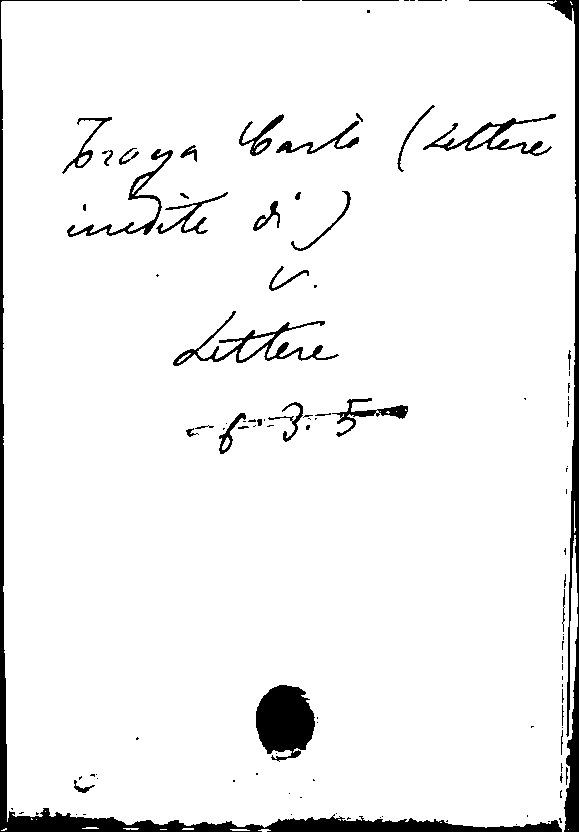 Troya Carlo (Lettere
inedite di)
v.
Lettere
6. 3. 5